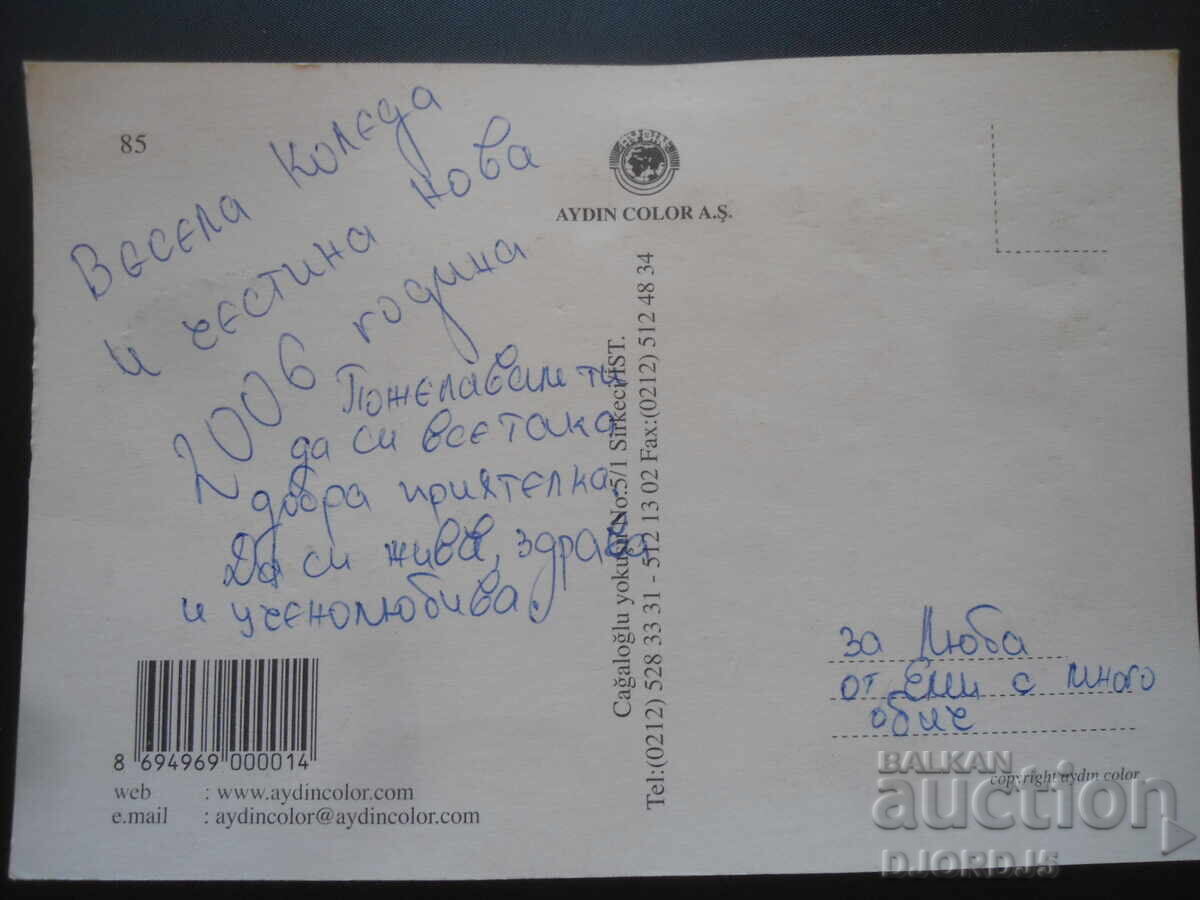 85
Весела Коледа
и честина нова
2006 година
Пожелавам ти
да си все така
добра приятелка.
Да си жива, здрава
и ученолюбива.
AYDIN
AYDIN COLOR A.Ş.
Cağaloğlu yokuşu No:5/1 Sirkeci/İST.
Tel:(0212) 528 33 31 - 512 13 02 Fax:(0212) 512 48 34
за Люба
от Еми с много
обич
8 694969 000014
web : www.aydincolor.com
e.mail : aydincolor@aydincolor.com
copyright aydın color
BALKAN
auction
DJORDJ5